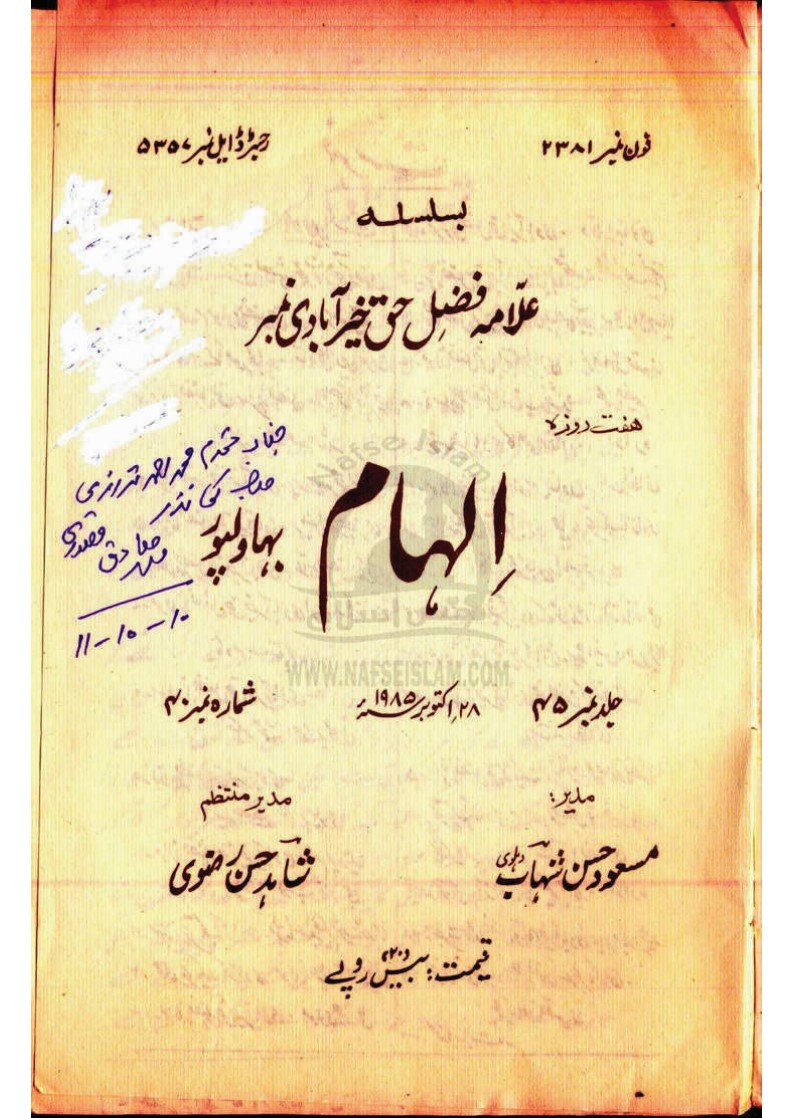 فون نمبر ۲۳۸۱
رجسٹرڈ ایل نمبر ۵۳۵۷
بسلسلہ
علّامہ فضلِ حق خیرآبادی نمبر
ہفت روزہ
اِلہام بہاولپور
جناب محترم محمد احمد ترازی
صاحب کی نذر
محمد صادق قصوری
۱۰-۱۰-۱۱
جلد نمبر ۴۵
۲۸؍ اکتوبر ۱۹۸۵ء
شمارہ نمبر ۴۰
مدیر:
مسعود حسن شہاب دہلوی
مدیر منتظم
شاہد حسن رضوی
قیمت: بیس (۲۰) روپے
Nafse Islam
WWW.NAFSEISLAM.COM